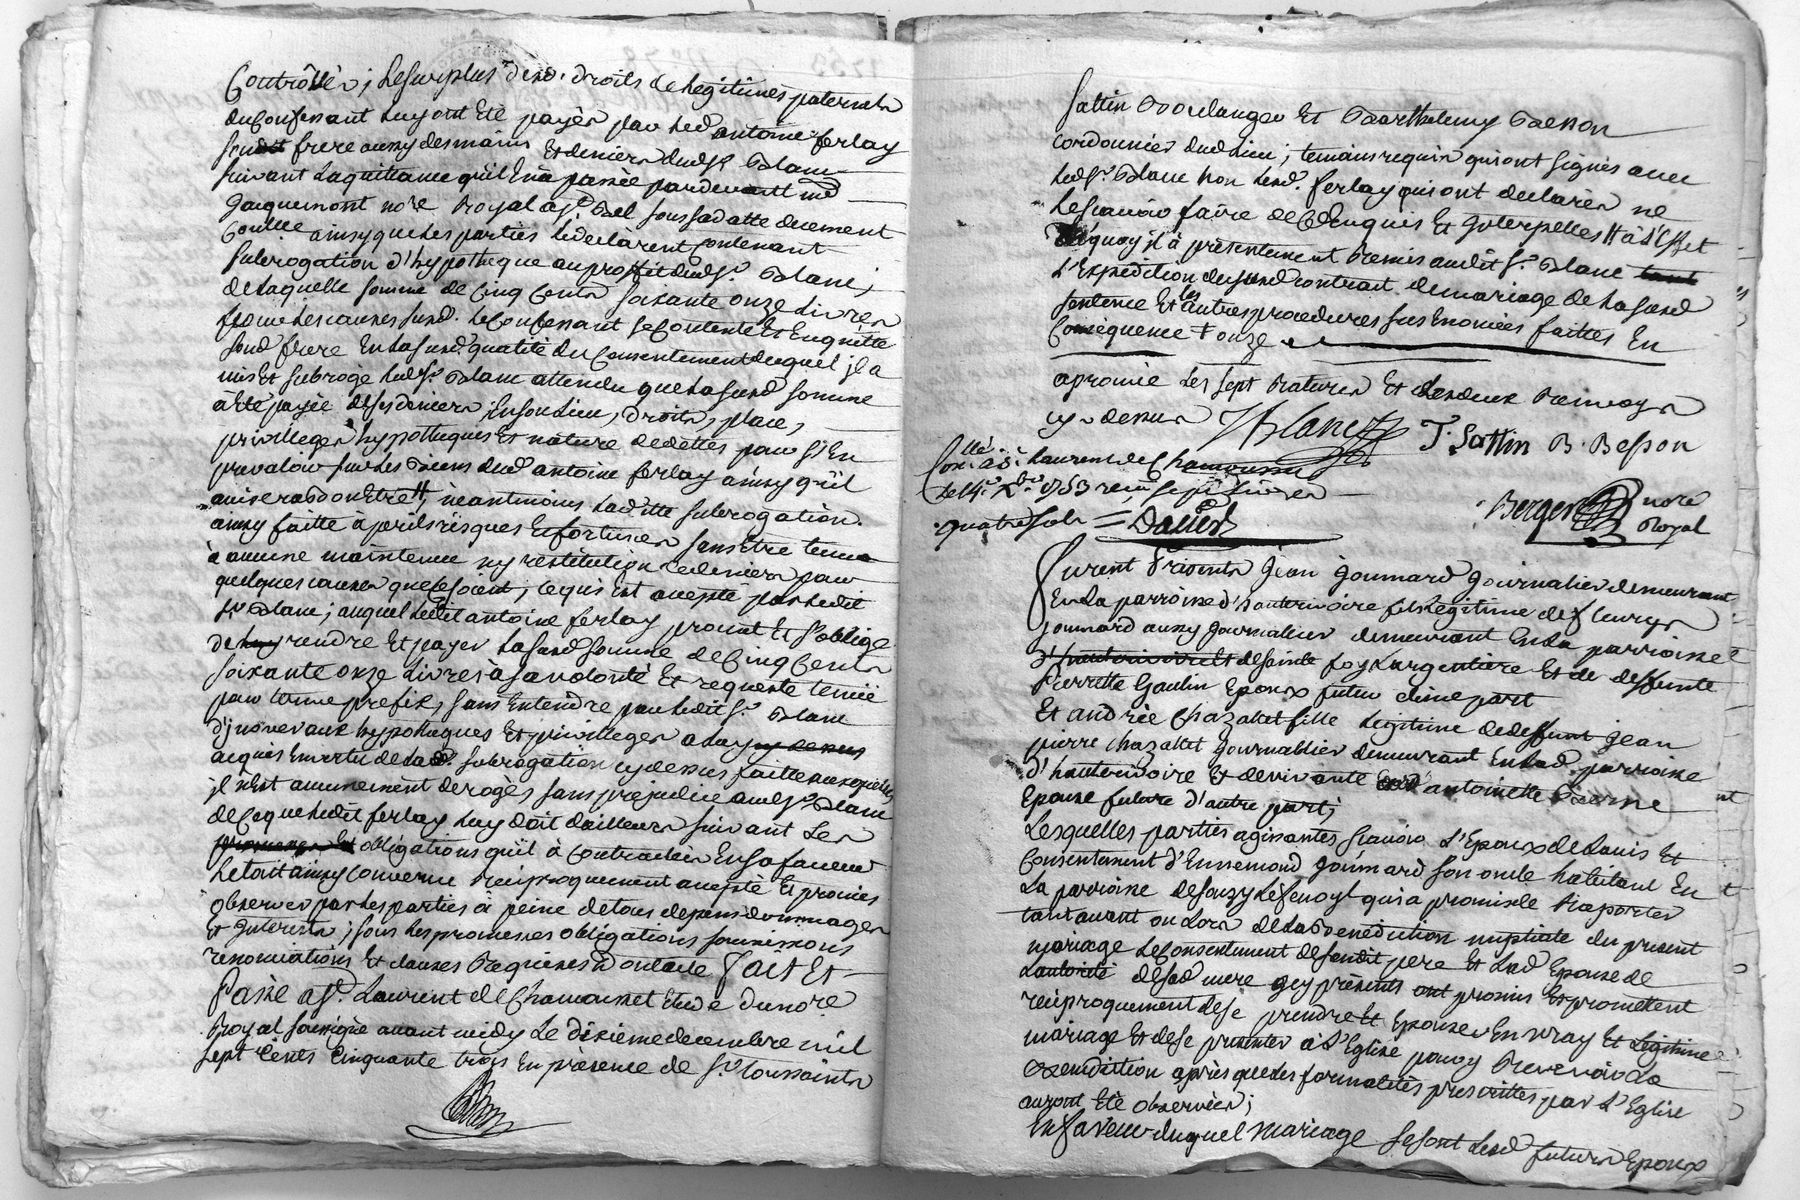 Controllé, Le surplus desd. droits de Legitimes paternels
du Confessant luy ont Eté payés par led. antoine ferlay
frere aussy des mains Et deniers dud. Sr. Blanc
suivant La quittance qu'il En a passée pardevant me
jacquemont nore Royal a St. Bel sous sa datte duement
Contllée ainsy que Les parties Le déclarent contenant
subrogation d'hypotheque au profit dud. Sr. Blanc;
de Laquelle somme de Cinq Cents soixante onze Livres
pour les causes susd. Le Confessant se Contente Et En quitte
sond frere En sa susd. qualité du Consentement duquel il a
mis Et subrogé led. Sr. Blanc attendu que La susd somme
a été payée de ses deniers; En son Lieu, droits, place,
privileges hypotheques Et nature de dettes pour s'En
prevaloir sur Les Biens dud antoine ferlay ainsy qu'il
avisera bon Etre, neantmoins Laditte subrogation
ainsy faitte à perils risques Et fortunes sans Etre tenu
à aucune maintenue ny restitution de deniers pour
quelques causes que Ce soient; Ce qui Est accepté par ledit
Sr. Blanc; auquel Ledit antoine ferlay promet Et s'oblige
de luy rendre Et payer La susd somme de Cinq Cents
soixante onze Livres à sa volonté Et requeste
pour terme prefix, sans Entendre par Ledit Sr. Blanc
d'jnover aux hypotheques Et privileges a luy
acquis En vertu de Lad. subrogation cy dessus faitte
il n'Est aucunement derogés sans prejudice aud. Sr. Blanc
de Ce que Ledit ferlay Luy doit d'ailleurs suivant Les
obligations qu'il à Contractées En sa faveur
Le tout ainsy convenu Reciproquement accepté Et promis
observer par Les parties à peine de tous depens dommages
Et Interests; sous Les promesses obligations soumissions
renonciations Et clauses Requises d'ont acte fait Et
Passé a St. Laurent de Chamousset Etude du nore
Royal soussigné avant midy Le dixieme decembre mil
sept Cents Cinquante trois En présence de Sr. toussaints
Sattin Boulanger Et Barthelemy Besson
cordonnier dud Lieu; temoins requis qui ont signés avec
led. Sr. Blanc non Lesd. ferlay qui ont declarés ne
Le scavoir faire de Ce Enquis Et Interpellés à L'Effet
de quoy il à présentement Remis audit Sr. Blanc
L'Expedition du susd contrait de mariage de La susd
sentence Et les autres procedures sus Enoncées faittes En
Conséquence onze
aprouvé Les sept Ratures Et Les deux Renvoys
cy dessus JBlanc T. Sattin B. Besson
Conllé. à St. Laurent de Chamousset
Le 14e. Xbre 1753 reçu sept Livres
quatre sols
Berger nore
Royal
Furent Présents jean goumard journalier demeurant
En La parroisse d'hauterivoire fils Legitime de fleury
goumard aussy journalier demeurant En La parroisse
de sainte foy L'argentiere Et de deffunte
Pierrette Gaulin Epoux futur d'une part
Et andrée Chazallet fille Legitime de deffunt jean
pierre chazallet journallier demeurant En Lad. parroisse
d'hauterivoire Et de vivante antoinette
Epouse future d'autre part;
Lesquelles parties agissantes scavoir L'Epoux de L'avis Et
Consentement d'Ennemond goumard son oncle habitant En
La parroisse de souzy Lesenoyl qui a promis de Raporter
tant avant ou Lors de La Benediction nuptiale du present
mariage Le Consentement de sondit pere Et Lad. Epouse de
L'autorité de sad mere icy presents ont promis Et promettent
reciproquement de se prendre Et Epouser En vray Et Legitime
mariage Et de se presenter à L'Eglise pour y Recevoir La
Benediction après que Les formalités prescrittes par L'Eglise
auront Eté observées;
En faveur duquel mariage se sont Lesd futurs Epoux